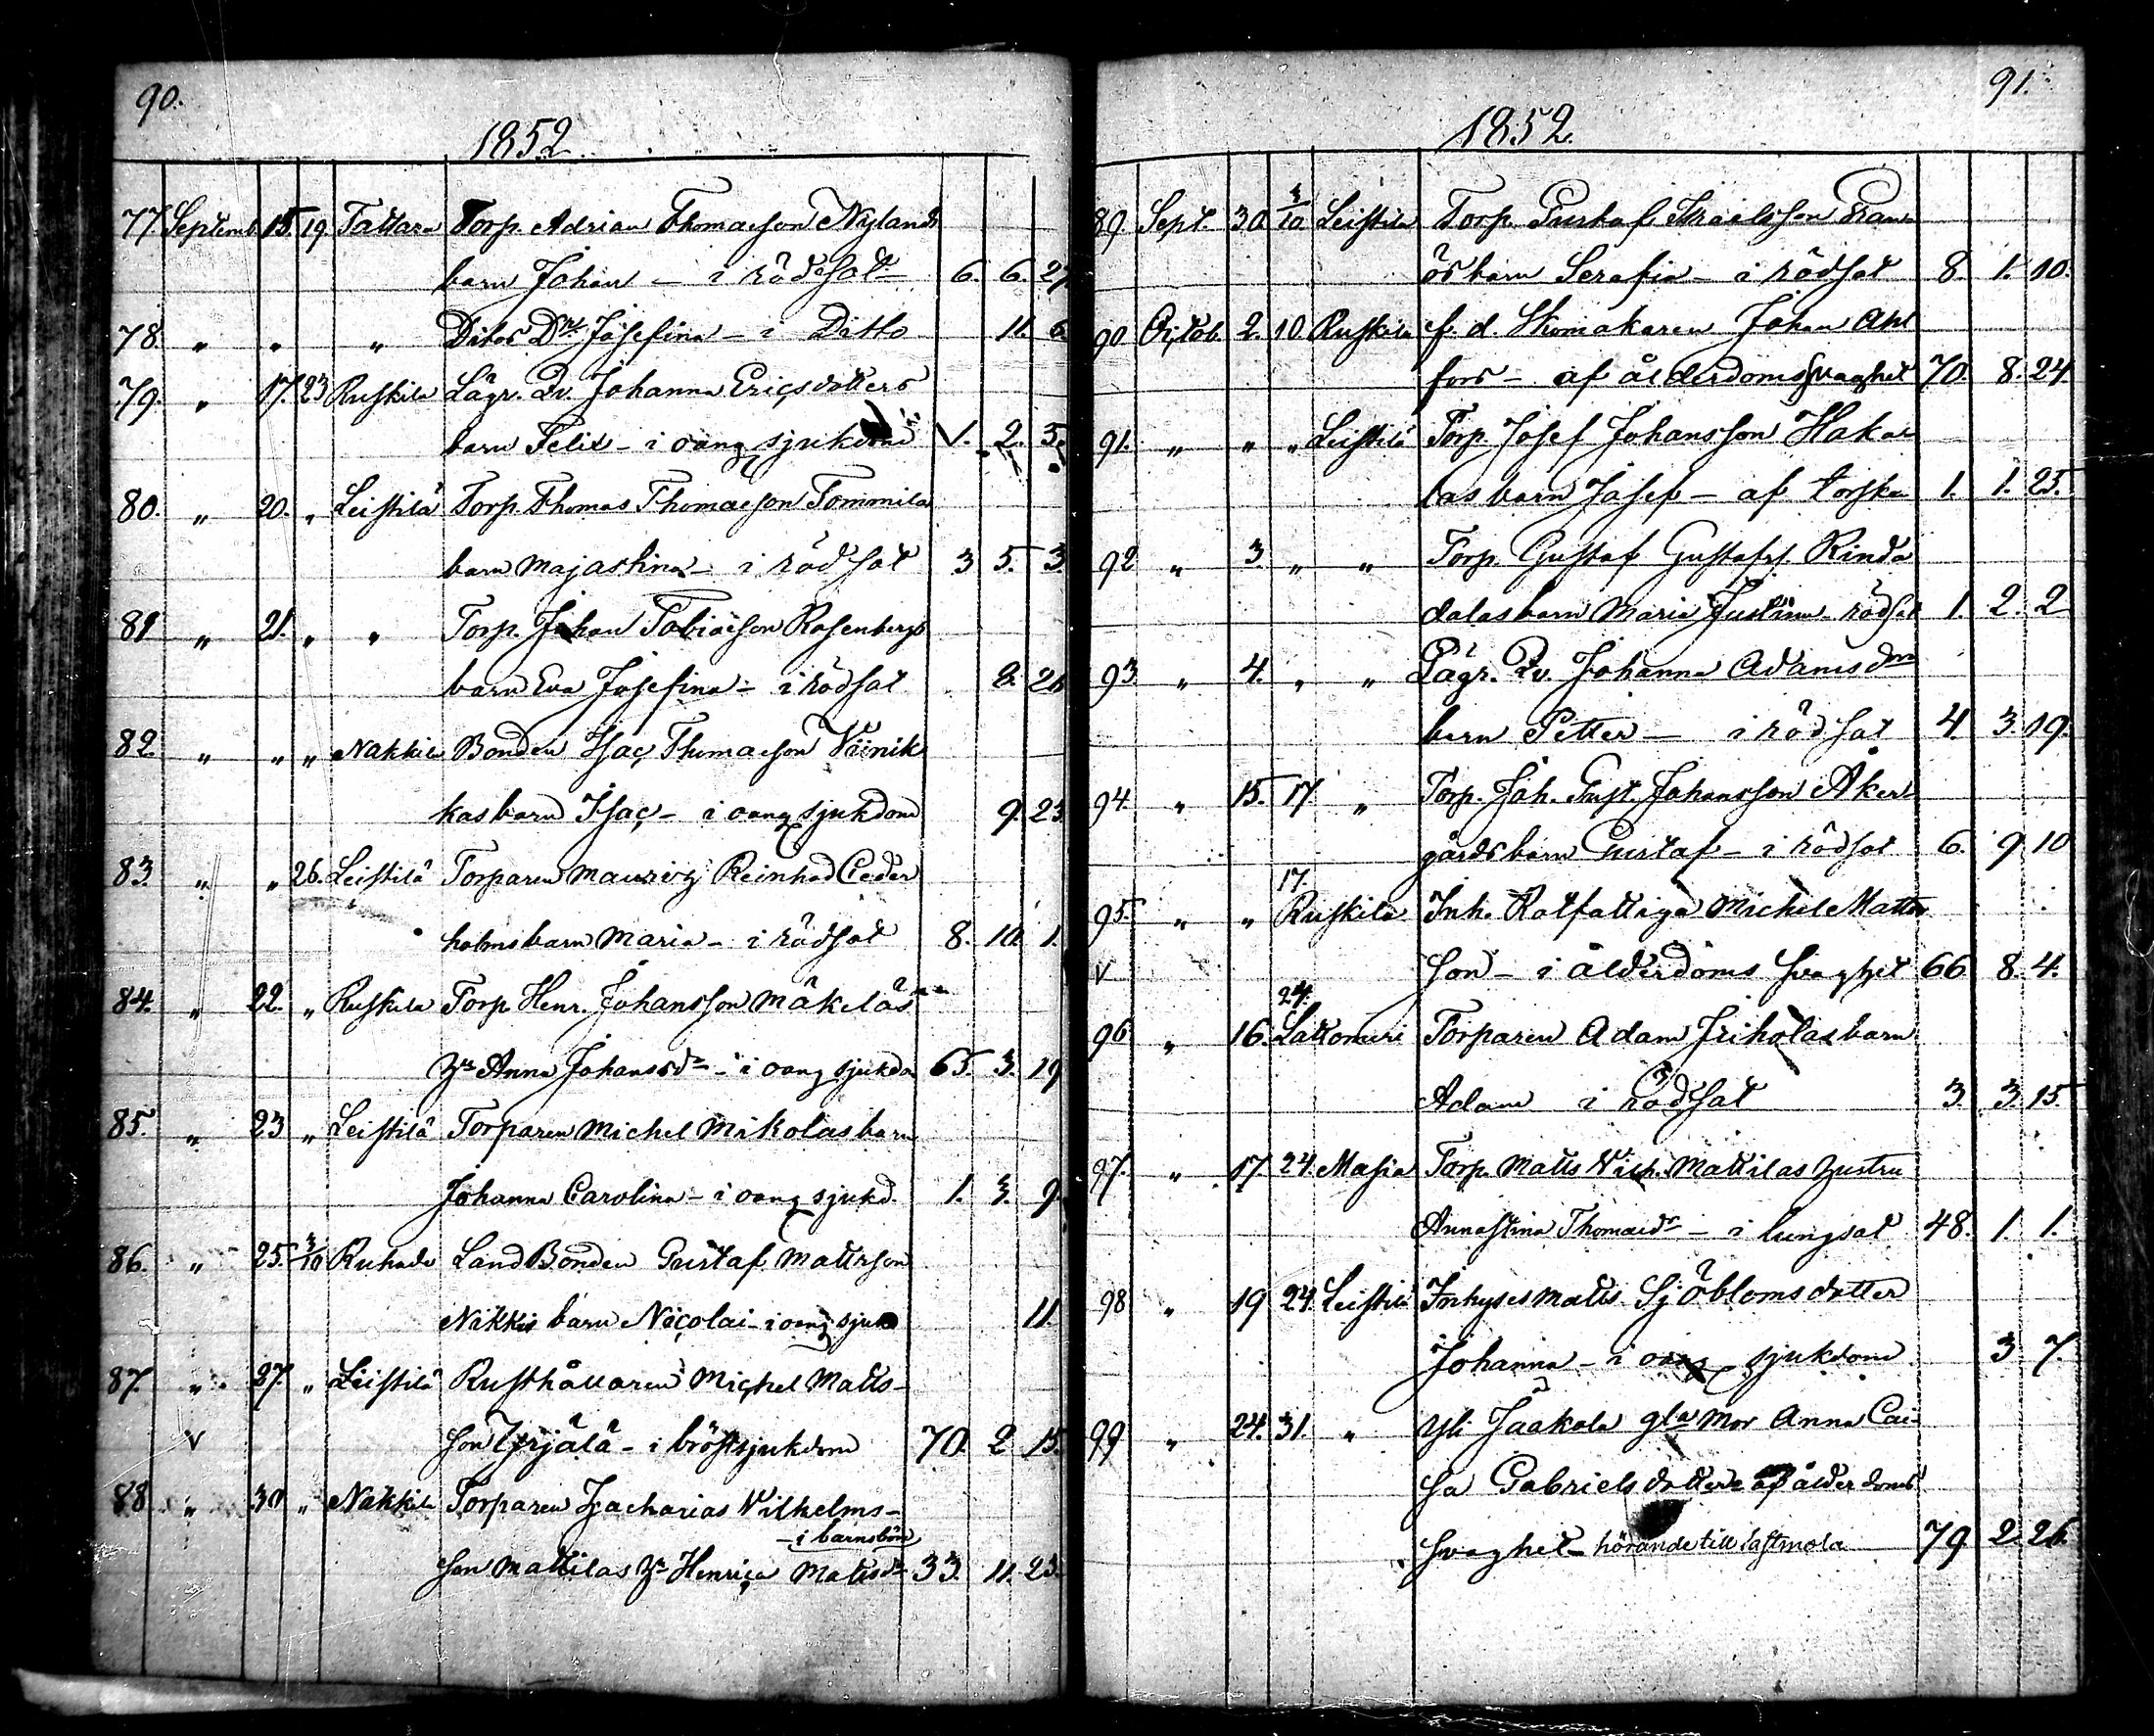 90.
1852
77. Septemb. 15. 19. Tattara Torp. Adrian Thomasson Nylands
barn Johan — i rödsot — 6. 6. 27
78. " " " Ditos Dr Josefina — i Ditto 11. 6.
79. " 17. 23 Ruskila Lägr. Qv. Johanna Ericsdotters
barn Felix — i oang sjukdom 1. 2. 5.
80. " 20. " Leistilä Torp. Thomas Thomasson Tommila
barn Majastina — i rödsot 3 5. 3.
81 " 21. " " Torp. Johan Tobiasson Rosenbergs
barn Eva Josefina — i rödsot 8. 26
82. " " " Nakkila Bonden Isac Thomasson Viinik
kas barn Isac — i oang sjukdom 9. 23
83. " " 26. Leistilä Torparen Mauritz Reinhad Ceder
holms barn Maria — i rödsot 8. 10. 1.
84. " 22. " Ruskila Torp Henr. Johansson Mäkeläs
Anna Johansdr — i oang sjukdo 65. 3. 19
85. " 23 " Leistilä Torparen Michel Mikolas barn
Johanna Carolina — i oang sjukd. 1. 3. 9.
86. " 25. 3/10 Ruhade LandBonden Gustaf Mattsson
Nikkis barn Nicolai — i oang sjuk 11.
87. " 27. " Leistilä Rusthållaren Michel Matts-
v son Yrjälä — i bröstsjukdom 70. 2 15.
88 " 30 " Nakkila Torparen Zacharias Wilhelms-
— i barnsbörd
son Mattilas Henrica Matsdr 33. 11. 23.
91.
1852.
89. Sept. 30. 3/10 Leistila Torp. Gustaf Israelsson Fram
ös barn Serafia — i rödsot 8. 1. 10.
90 Octob. 2. 10. Ruskila f. d. Skomakaren Johan Ahl
fors — af ålderdomsvaghet 70. 8. 24.
91. " " " Leistilä Torp. Josef Johansson Haka
las barn Josef — af torsken 1. 1. 25.
92 " 3. " " Torp. Gustaf Gustafss. Rinda
dalas barn Maria Justina rödsot 1. 2. 2
93 " 4. " " Lägr. Qv. Johanna Adamsdrs
barn Petter — i rödsot 4. 3. 19.
94. " 15. 17 " Torp. Joh. Gust. Johansson Åker
gårds barn Gustaf — i rödsot 6. 9 10
17.
95. " " Ruskila Inh. Rotfattiga Michel Matts
v son — i ålderdoms svaghet 66 8. 4.
24.
96 " 16. Lattomeri Torparen Adam Friholas barn
Adam i rödsot 3. 3. 15.
97. " 17. 24. Masia Torp. Matts Wilh. Mattilas hustru
Annastina Thomasdr — i lungsot 48. 1. 1.
98 " 19 24. Leistilä Inhyses Matts Sjöbloms dotter
Johanna — i oang sjukdom 3 7.
99 " 24. 31. " Yli Jaakola gla mor Anna Cai-
sa Gabrielsdotter af ålderdoms
svaghet — hörande till 79 2. 26.